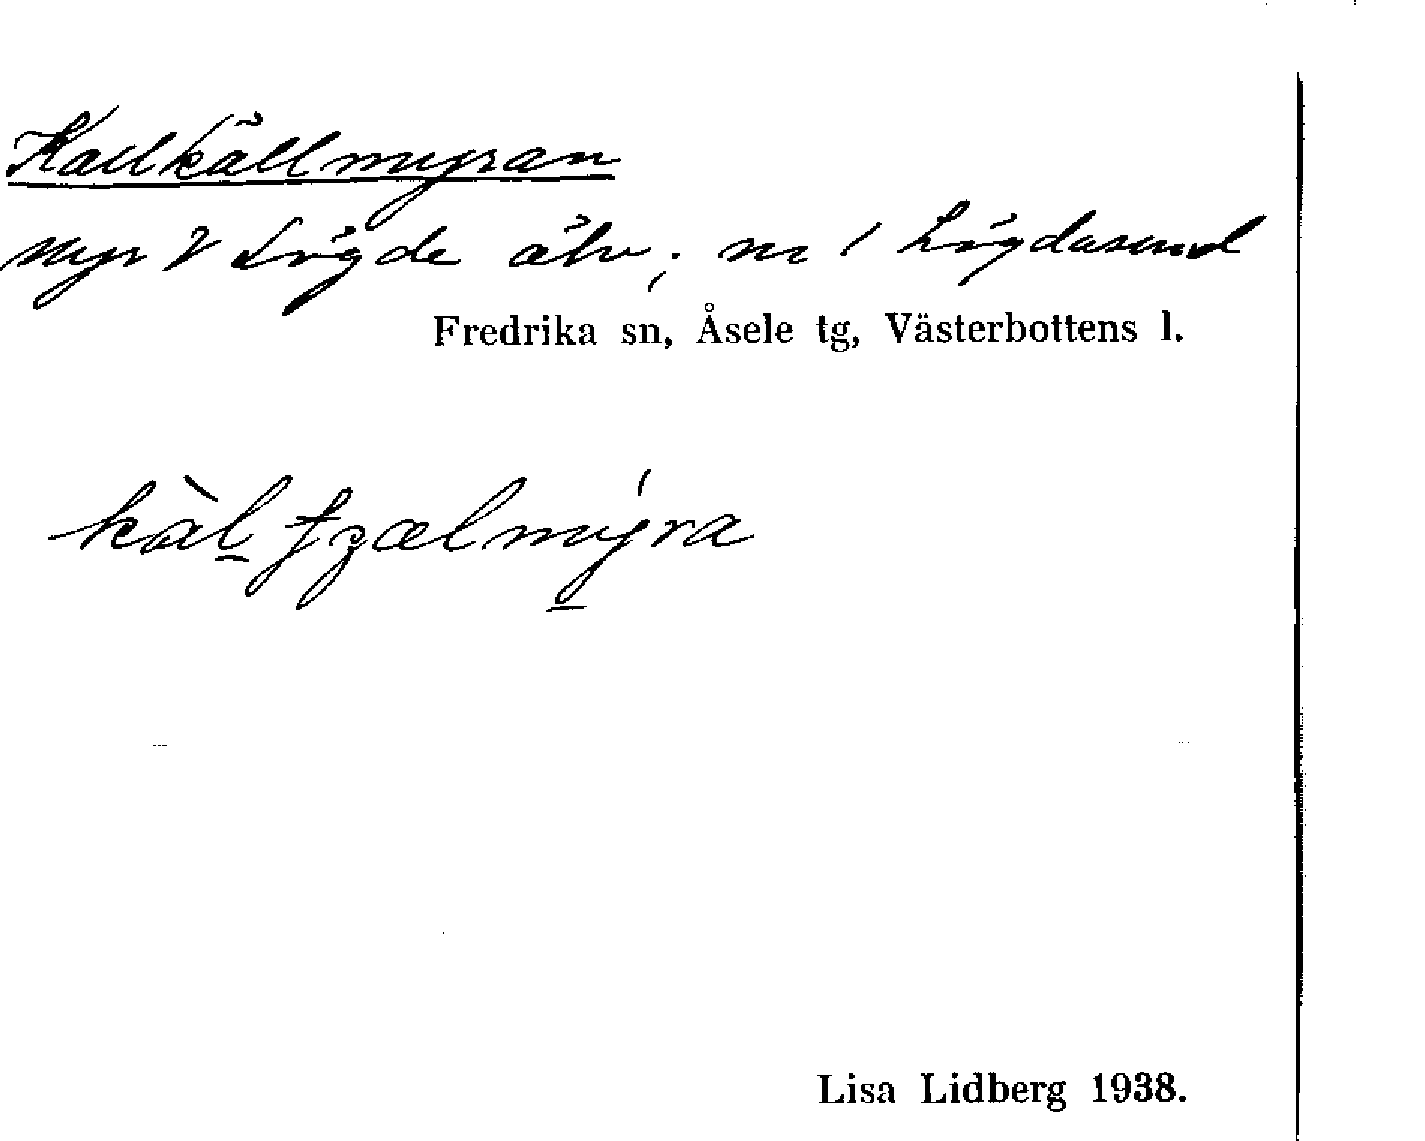 Kallkällmyran
Myr V Lögde älv; nr / Lögdasund
Fredrika sn, Åsele tg, Västerbottens l.
kàl tʒælmýra
Lisa Lidberg 1938.